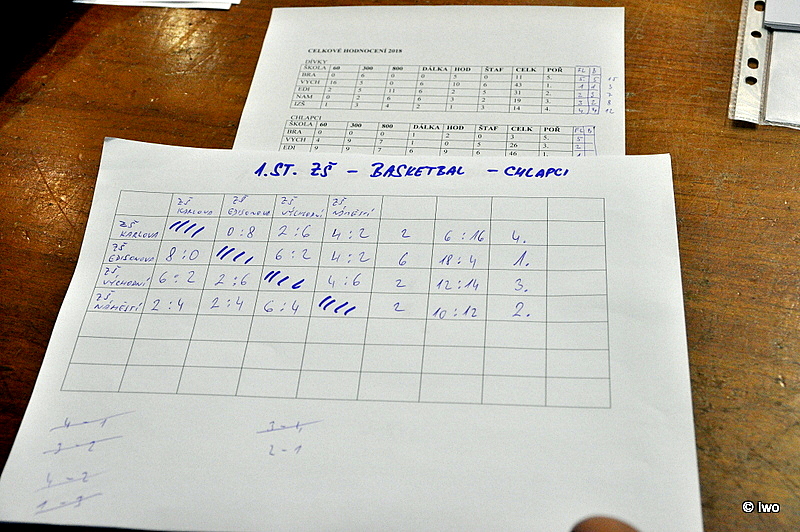 CELKOVÉ HODNOCENÍ 2018
DÍVKY
ŠKOLA 60 300 800 DÁLKA HOD ŠTAF CELK POŘ
BRA 0 6 0 0 5 0 11 5. 5 5 15
VÝCH 16 5 0 6 10 6 43 1. 1 1 3
EDI 2 5 11 6 2 5 31 2. 2 8
NÁM 0 2 6 6 3 2 19 3. 3
IZŠ 1 3 4 2 1 3 14 4. 4 4 12
CHLAPCI
ŠKOLA 60 300 800 DÁLKA HOD ŠTAF CELK POŘ
BRA 0 0 0 1 2 0 3 5. 5
VÝCH 4 9 7 1 0 5 26 3. 2
EDI 9 9 7 6 9 6 46 1.
1.ST. ZŠ - BASKETBAL - CHLAPCI
ZŠ KARLOVA ZŠ EDISONOVA ZŠ VÝCHODNÍ ZŠ NÁMĚSTÍ
ZŠ KARLOVA 0:8 2:6 4:2 2 6:16 4.
ZŠ EDISONOVA 8:0 6:2 4:2 6 18:4 1.
ZŠ VÝCHODNÍ 6:2 2:6 4:6 2 12:14 3.
ZŠ NÁMĚSTÍ 2:4 2:4 6:4 2 10:12 2.
4-1
3-2
4-2
1-3
2-1
© Iwo